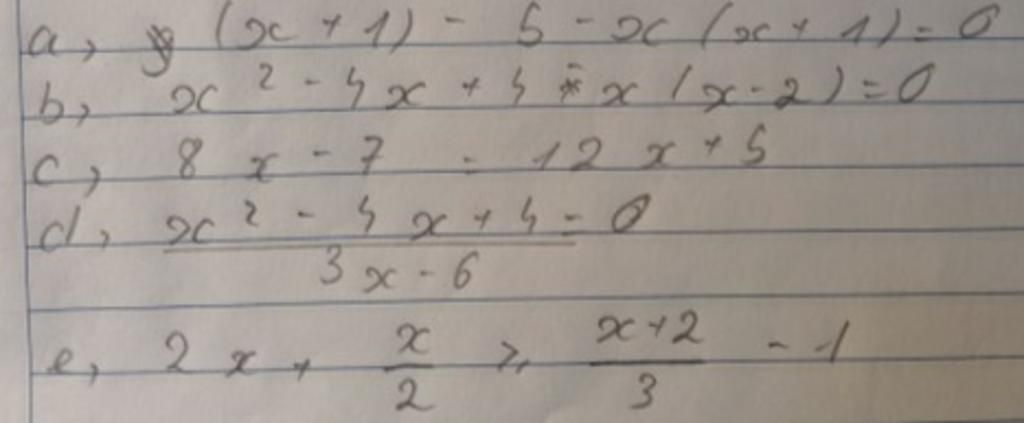 a, y (x + 1) - 5 - x (x + 1) = 0
b, x² - 4x + 4 = x (x - 2) = 0
c, 8x - 7 = 12x + 5
d, x² - 4x + 4 = 0
3x - 6
e, 2x + x/2 ≥ x+2/3 - 1